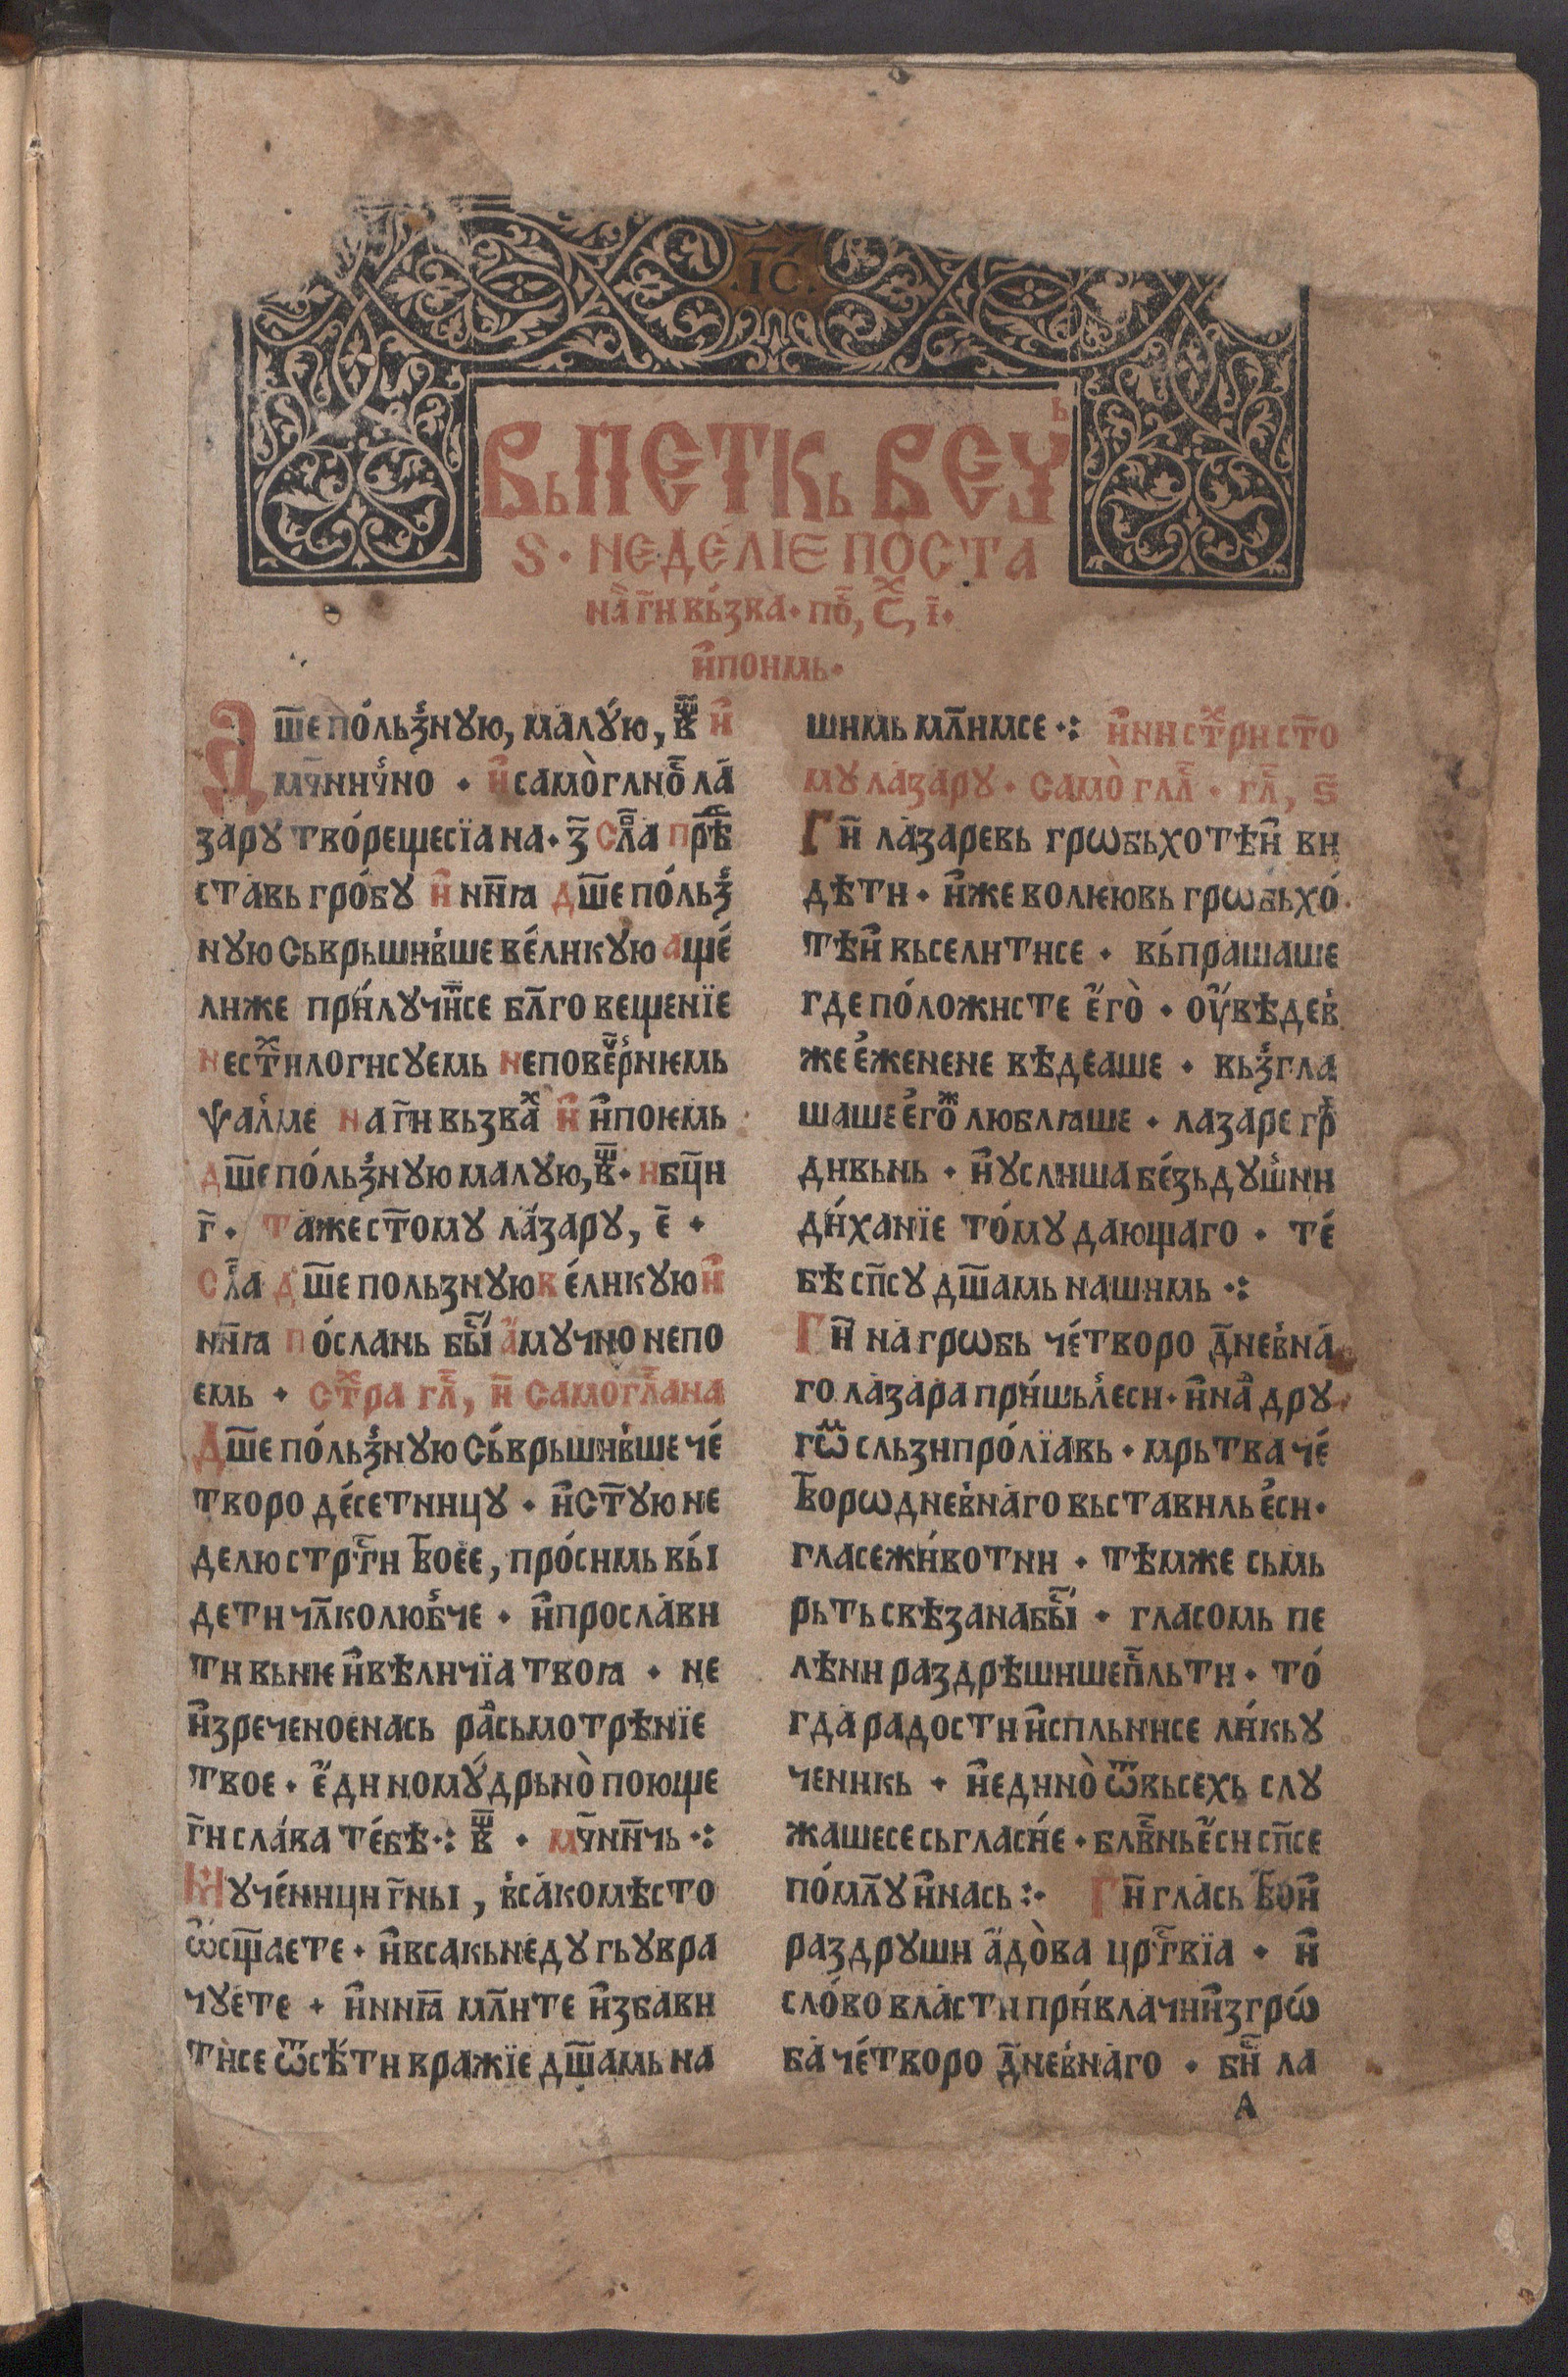 .ІС.
Вь ПЕТКь ВЕꙊь
Ѕ · НЕДЕЛІЕ ПОСТА
на̏ г҃и вьзва · по҃, с҃х, і҃ ·
и҆поимь ·
Дш҃епо́льзꙵнꙋю, малꙋ́ю, в҃ш и҆
мч҃ничꙵно · и҆самоглно҃ ла́
зарꙋ тво́рещесїа на · з҃ сл҃а прѣ҃
ставь гро́бꙋ и҆ нн҃ꙗ дш҃епо́льзꙵ
нꙋюсьврьшившевѐликꙋю аще́
лиже при́лꙋчи҃се бл҃говещенїе
нест҃хилогисꙋемь неповѐчꙵрнѥмь
ѱалꙵме на г҃и вьзвах и҆ и҆поѥмь
дш҃епо́льзꙵнꙋюмалꙋю, в҃ш · нбц҃и
г҃ · таже ст҃омꙋ ла́зарꙋ, е҃ ·
сл҃а дш҃епользнꙋювѐликꙋюи҆
нн҃ꙗ по́слань бы҃ а҆мꙋчно непо
емь · ст҃хра гл҃, и҃ самогл҃ана
Дш҃епо́льзꙵнꙋюсьврьшившече́
творо де́сетницꙋ · и҆ст҃ꙋюне
делюстрт҃ги твоѐе, про́симь вы́
дети чл҃колюбꙵче · и҆прослави
тивьниѥи҆вѣличїатвоꙗ · не
и҆зреченоенась расьмотрѣнїе
твое · е҆диномꙋ́дрьно поюще
г҃ислава те́бѣ ·: в҃ш · мч҃нн҃чь ·:
Мꙋче́ници г҃ны, всакомѣсто
ѡ҆сщ҃аете · и҆всакьнедꙋгьꙋвра
чꙋете · и҆нн҃ꙗ мл҃ите и҆збави
тисе ѿсѣ́ти вражїе дш҃амьна
шимьмл҃имсе ·: и҆ни ст҃хри сто҃
мꙋлазарꙋ · самогл҃л · гл҃, ѕ҃
Ги҃ лазаревь грѡбьхотѣи҆ ви
дѣти · и҆жеволиѥювь грѡбьхо́
тѣи҆вьселитисе · вьпрашаше
гдепо́ложисте е҆го · оу҆вѣдев
жее҆женене вѣдеаше · вьзꙵгла
шашее҆гожлюблꙗше · лазаре гр҃
дивьнь · и҆ꙋслишабе́зьдꙋшнии
ди́ханїе то́мꙋдающаго · те́
бѣсп҃сꙋдш҃амьнашимь ·:
Ги҃ нагрѡбь че́творо дн҃евна́
го лазарапри́шьлꙵеси · и҆на дрꙋ
гѡм сльзипро́лїавь · мрьтвачѐ
творѡдневна́говьставильеси ·
гласежи́вотни · тѣмже сьмь
рьтьсвѣзанабы҃ · гласомь пе
лѣнираздрѣшишеп҃льти · то́
гдарадости и҆спльнисе ли́кьꙋ
ченикь · и҆едино ѿвьсехь слꙋ
жашесесьгласне · блв҃ньесисп҃се
по́мл҃ꙋи҆нась :· Ги҃ гласьтвои҆
раздрꙋши а҆до̀ва црт҃вїа · и҆
сло́вовласти при́влачии҆згрѡ́
баче́творо дн҃евнаго · би҃ ла
а